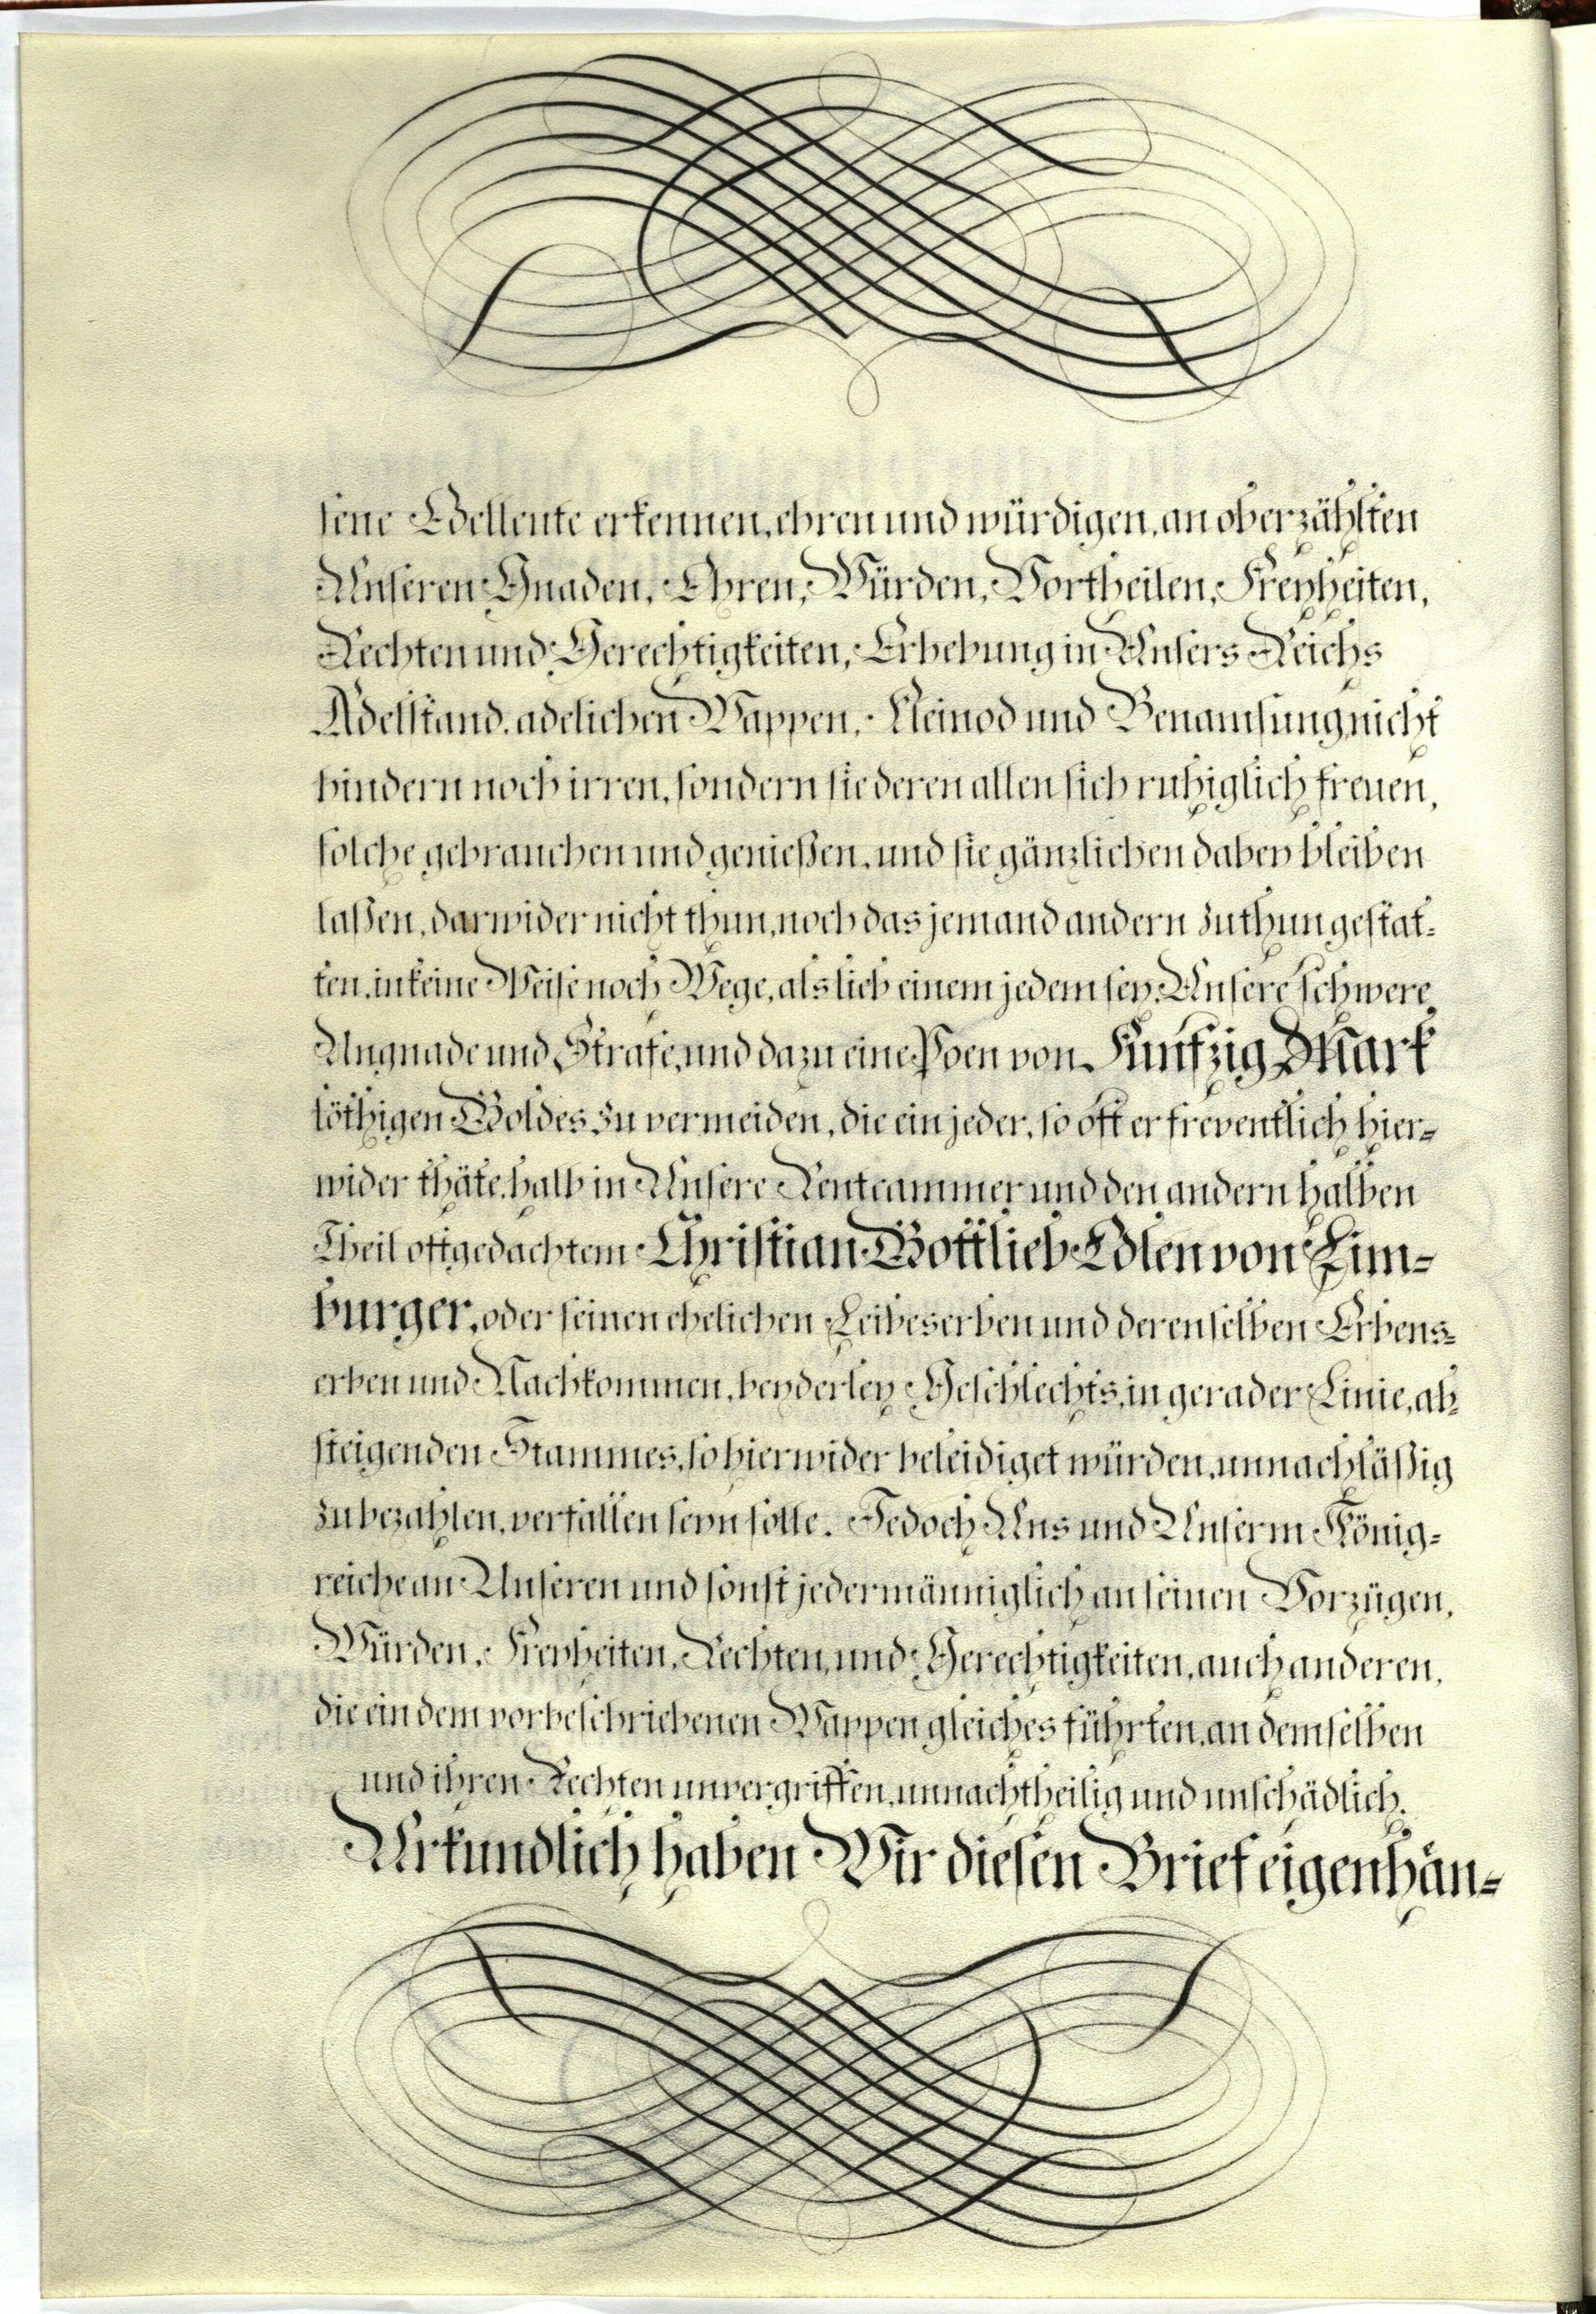 sene Edelleute erkennen, ehren und würdigen, an oberzählten
Unseren Gnaden, Ehren, Würden, Vortheilen, Freyheiten,
Rechten und Gerechtigkeiten, Erhebung in Unsers Reichs
Adelstand, adelichen Wappen, Kleinod und Benamsung nicht
hindern noch irren, sondern sie deren allen sich ruhiglich freuen,
solche gebrauchen und genießen, und sie gänzlichen dabey bleiben
laßen, darwider nicht thun, noch das jemand andern zu thun gestat-
ten, in keine Weise noch Wege, als lieb einem jedem sey, Unsere schwere
Ungnade und Strafe, und dazu eine Poen von Funfzig Mark
löthigen Goldes zu vermeiden, die ein jeder, so oft er freventlich hier-
wider thäte, halb in Unsere Rentcammer und den andern halben
Theil oftgedachtem Christian Gottlieb Edlen von Lim-
burger, oder seinen ehelichen Leibeserben und derenselben Erbens-
erben und Nachkommen, beyderley Geschlechts, in gerader Linie, ab-
steigenden Stammes, so hierwider beleidiget würden, unnachläßig
zu bezahlen, verfallen seyn solle. Jedoch Uns und Unserm König-
reiche an Unseren und sonst jedermänniglich an seinen Vorzügen,
Würden, Freyheiten, Rechten, und Gerechtigkeiten, auch anderen,
die ein dem vorbeschriebenen Wappen gleiches führten, an demselben
und ihren Rechten unvergriffen, unnachtheilig und unschädlich.
Urkundlich haben Wir diesen Brief eigenhän-